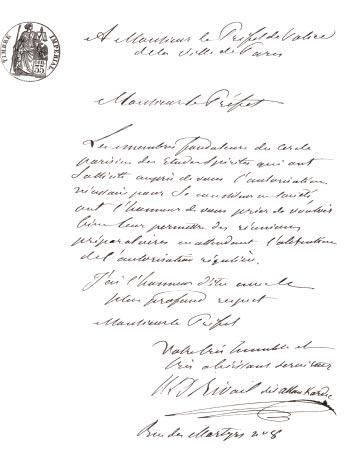 TIMBRE IMPERIAL
A Monsieur le Préfet de Police
de la ville de Paris
Monsieur le Préfet
Les membres fondateurs du cercle
parisien des Etudes spirites qui ont
sollicité auprès de vous l'autorisation
nécessaire pour se constituer en société
ont l'honneur de vous prier de vouloir
bien leur permettre des réunions
préparatoires en attendant l'obtention
de l'autorisation régulière.
J'ai l'honneur d'être avec le
plus profond respect
Monsieur le Préfet
Votre très humble et
très obéissant serviteur
H L D Rivail dit Allan Kardec
Rue des Martyrs n° 8